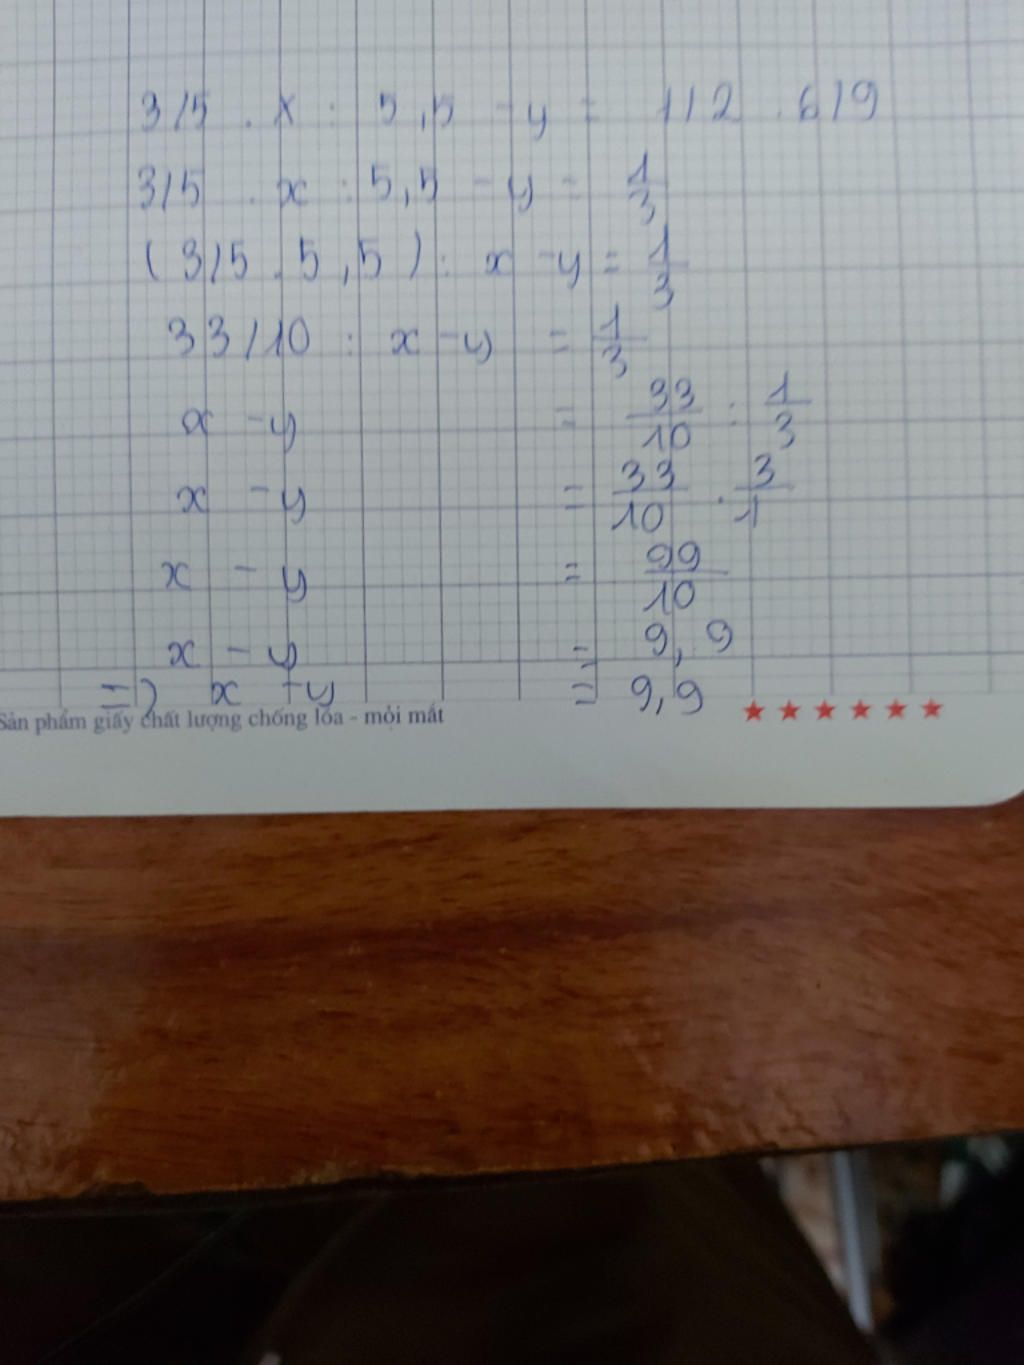 3/5 . x : 5,5 - y = 1/2 . 6/9
3/5 . x : 5,5 - y = 1/3
(3/5 . 5,5) : x - y = 1/3
33/10 : x - y = 1/3
x - y = 33/10 : 1/3
x - y = 33/10 . 3/1
x - y = 99/10
x - y = 9,9
=) x - y = 9,9
Sản phẩm giấy chất lượng chống lóa - mỏi mắt